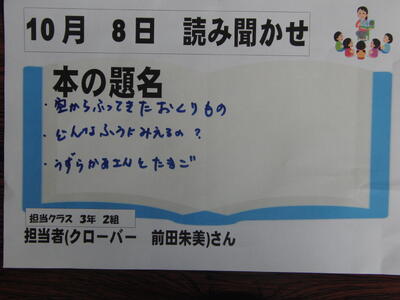 10月 8日 読み聞かせ
本の題名
・空からふってきたおくりもの
・どんなふうにみえるの？
・うずらかあさんとたまご
担当クラス 3年 2組
担当者(クローバー 前田朱美)さん